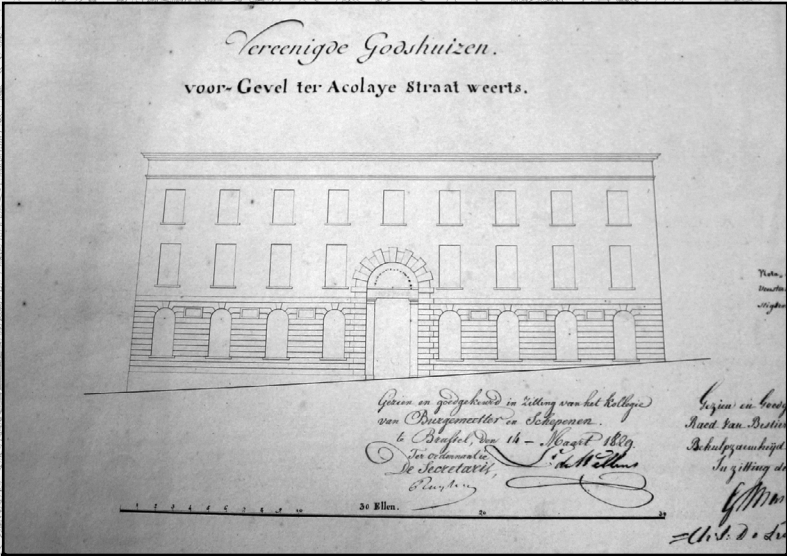 Vereenigde Godshuizen.
voor-Gevel ter Acolaye Straat weerts.
Gezien en goedgekeurd in Zitting van het Kollegie
van Burgemeester en Schepenen.
te Brussel, den 14 - Maart 1829.
Ter ordonnantie
De Secretaris,
L. de Wellens
Nota.
Gezien en Goedg
Raed van Bestier
Behulpzaemheyd
In zitting de
1 2 3 4 5 6 7 8 9 10 30 Ellen. 20 30